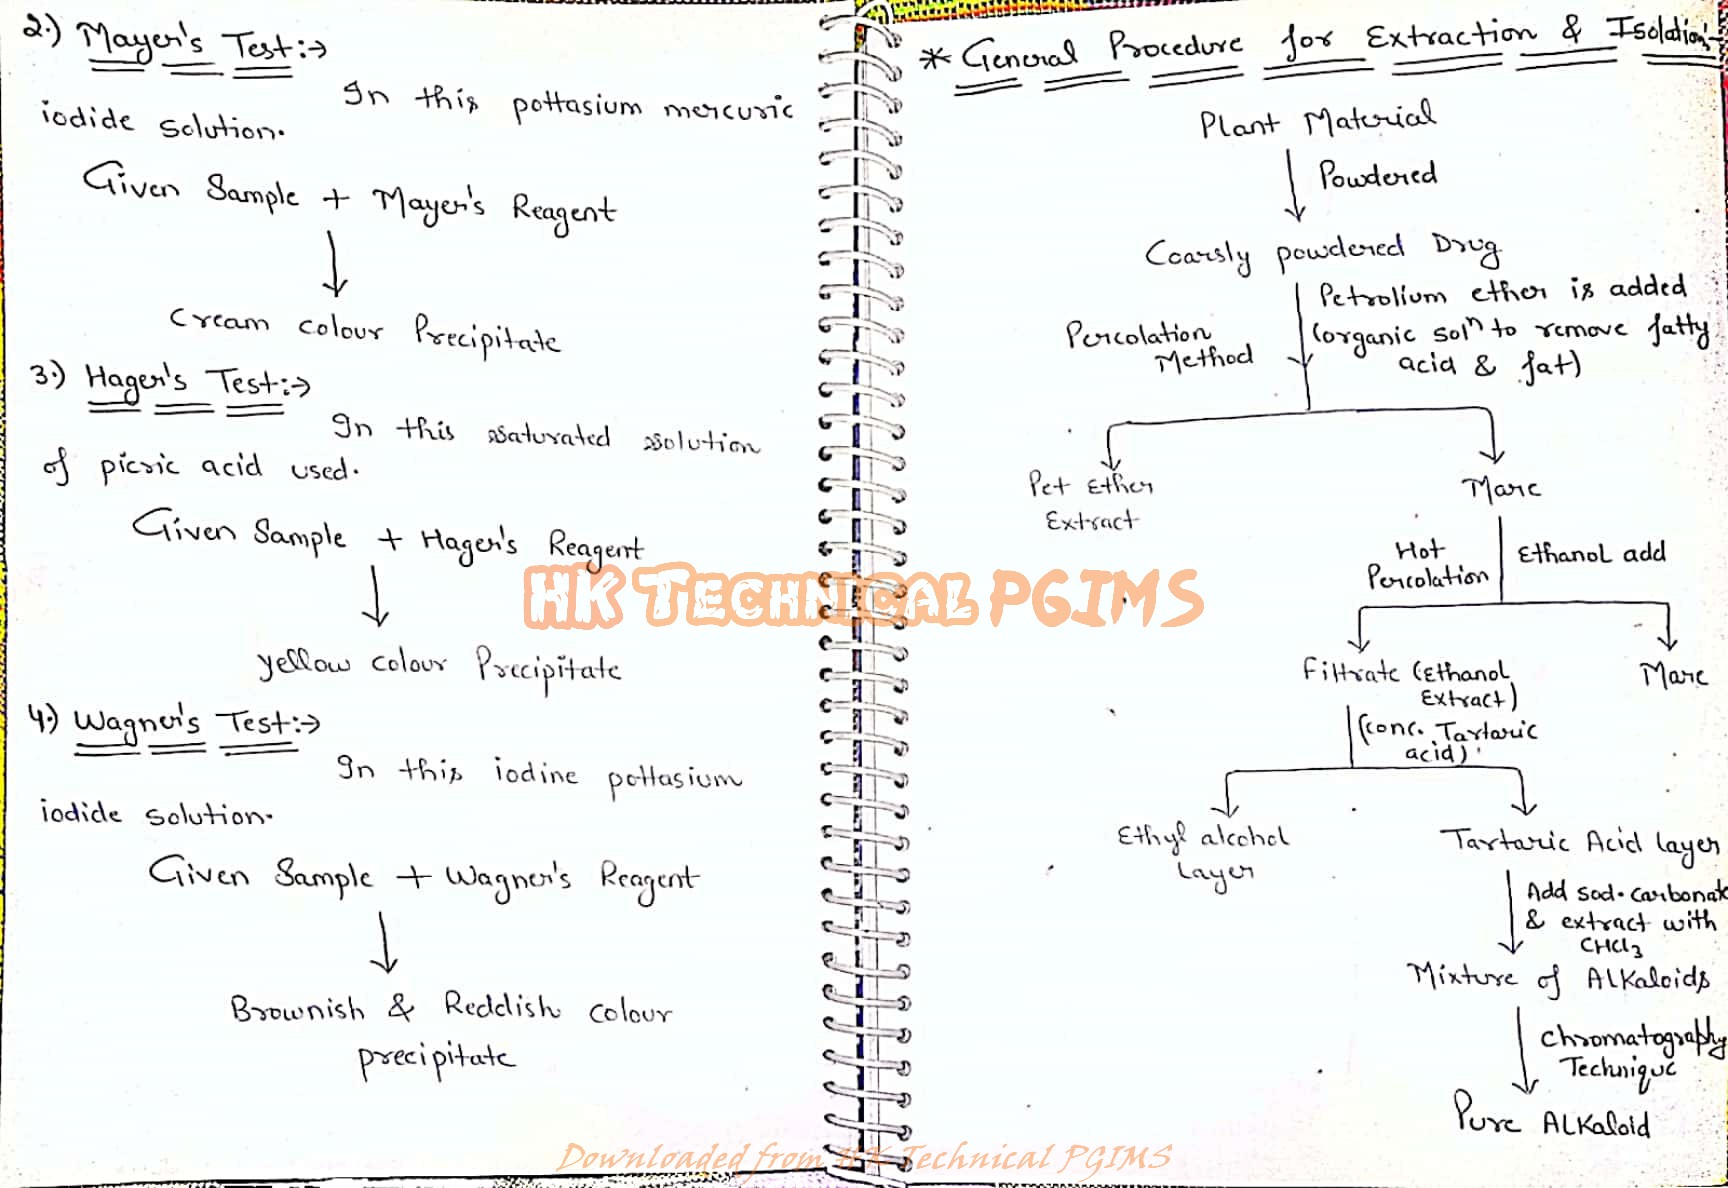 2.) Mayer's Test:→
In this pottasium mercuric
iodide solution.
Given Sample + Mayer's Reagent
cream colour Precipitate
3.) Hager's Test:→
In this saturated solution
of picric acid used.
Given Sample + Hager's Reagent
yellow colour Precipitate
4.) Wagner's Test:→
In this iodine pottasium
iodide solution.
Given Sample + Wagner's Reagent
Brownish & Reddish colour
precipitate
* General Procedure for Extraction & Isolation:-
Plant Material
Powdered
Coarsly powdered Drug
Percolation
Method
Petrolium ether is added
(organic solⁿ to remove fatty
acid & fat)
Pet Ether
Extract
Marc
Hot
Percolation
Ethanol add
Filtrate (Ethanol
Extract)
Marc
(conc. Tartaric
acid)
Ethyl alcohol
Layer
Tartaric Acid layer
Add sod. carbonate
& extract with
CHCl3
Mixture of Alkaloids
chromatography
Technique
Pure Alkaloid
HK Technical PGIMS
Downloaded from HK Technical PGIMS